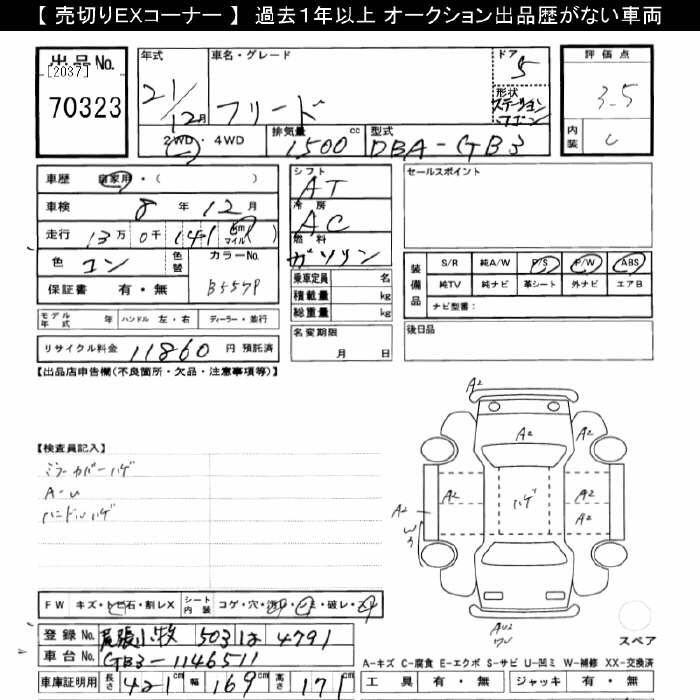 【 売切りEXコーナー 】 過去1年以上 オークション出品歴がない車両
出品No.
[2037]
70323
年式
21/12月
車名・グレード
フリード
ドア
5
形状
ステーションワゴン
評価点
3.5
内装
C
2WD・4WD
排気量
1500 cc
型式
DBA-GB3
車歴 自家用・( )
車検 8年 12月
走行 13万 0千 141 km マイル )
色 コン 色替
カラーNo.
B557P
保証書 有・無
モデル年式 年 ハンドル 左・右 ディーラー・並行
リサイクル料金 11860 円 預託済
シフト
AT
冷房
AC
燃料
ガソリン
乗車定員 名
積載量 kg
総重量 kg
名変期限
月 日
セールスポイント
装備品
S/R 純A/W P/S P/W ABS
純TV 純ナビ 革シート 外ナビ エアB
ナビ型番:
後日品
【出品店申告欄(不良箇所・欠品・注意事項等)】
【検査員記入】
ミラーカバーハゲ
A-U
ハンドルハゲ
A2
A2
A2
A2
A2
A2
A2
ハゲ
A2
W3
AU2
FW キズ・トビ石・割レX シート内装 コゲ・穴・
・破レ・
登録No. 尾張小牧 503 は 4791
車台No. GB3-1146511
車庫証明用 長さ 421 cm 幅 169 cm 高さ 171 cm
スペア
A-キズ C-腐食 E-エクボ S-サビ U-凹ミ W-補修 XX-交換済
工具 有・無 ジャッキ 有・無